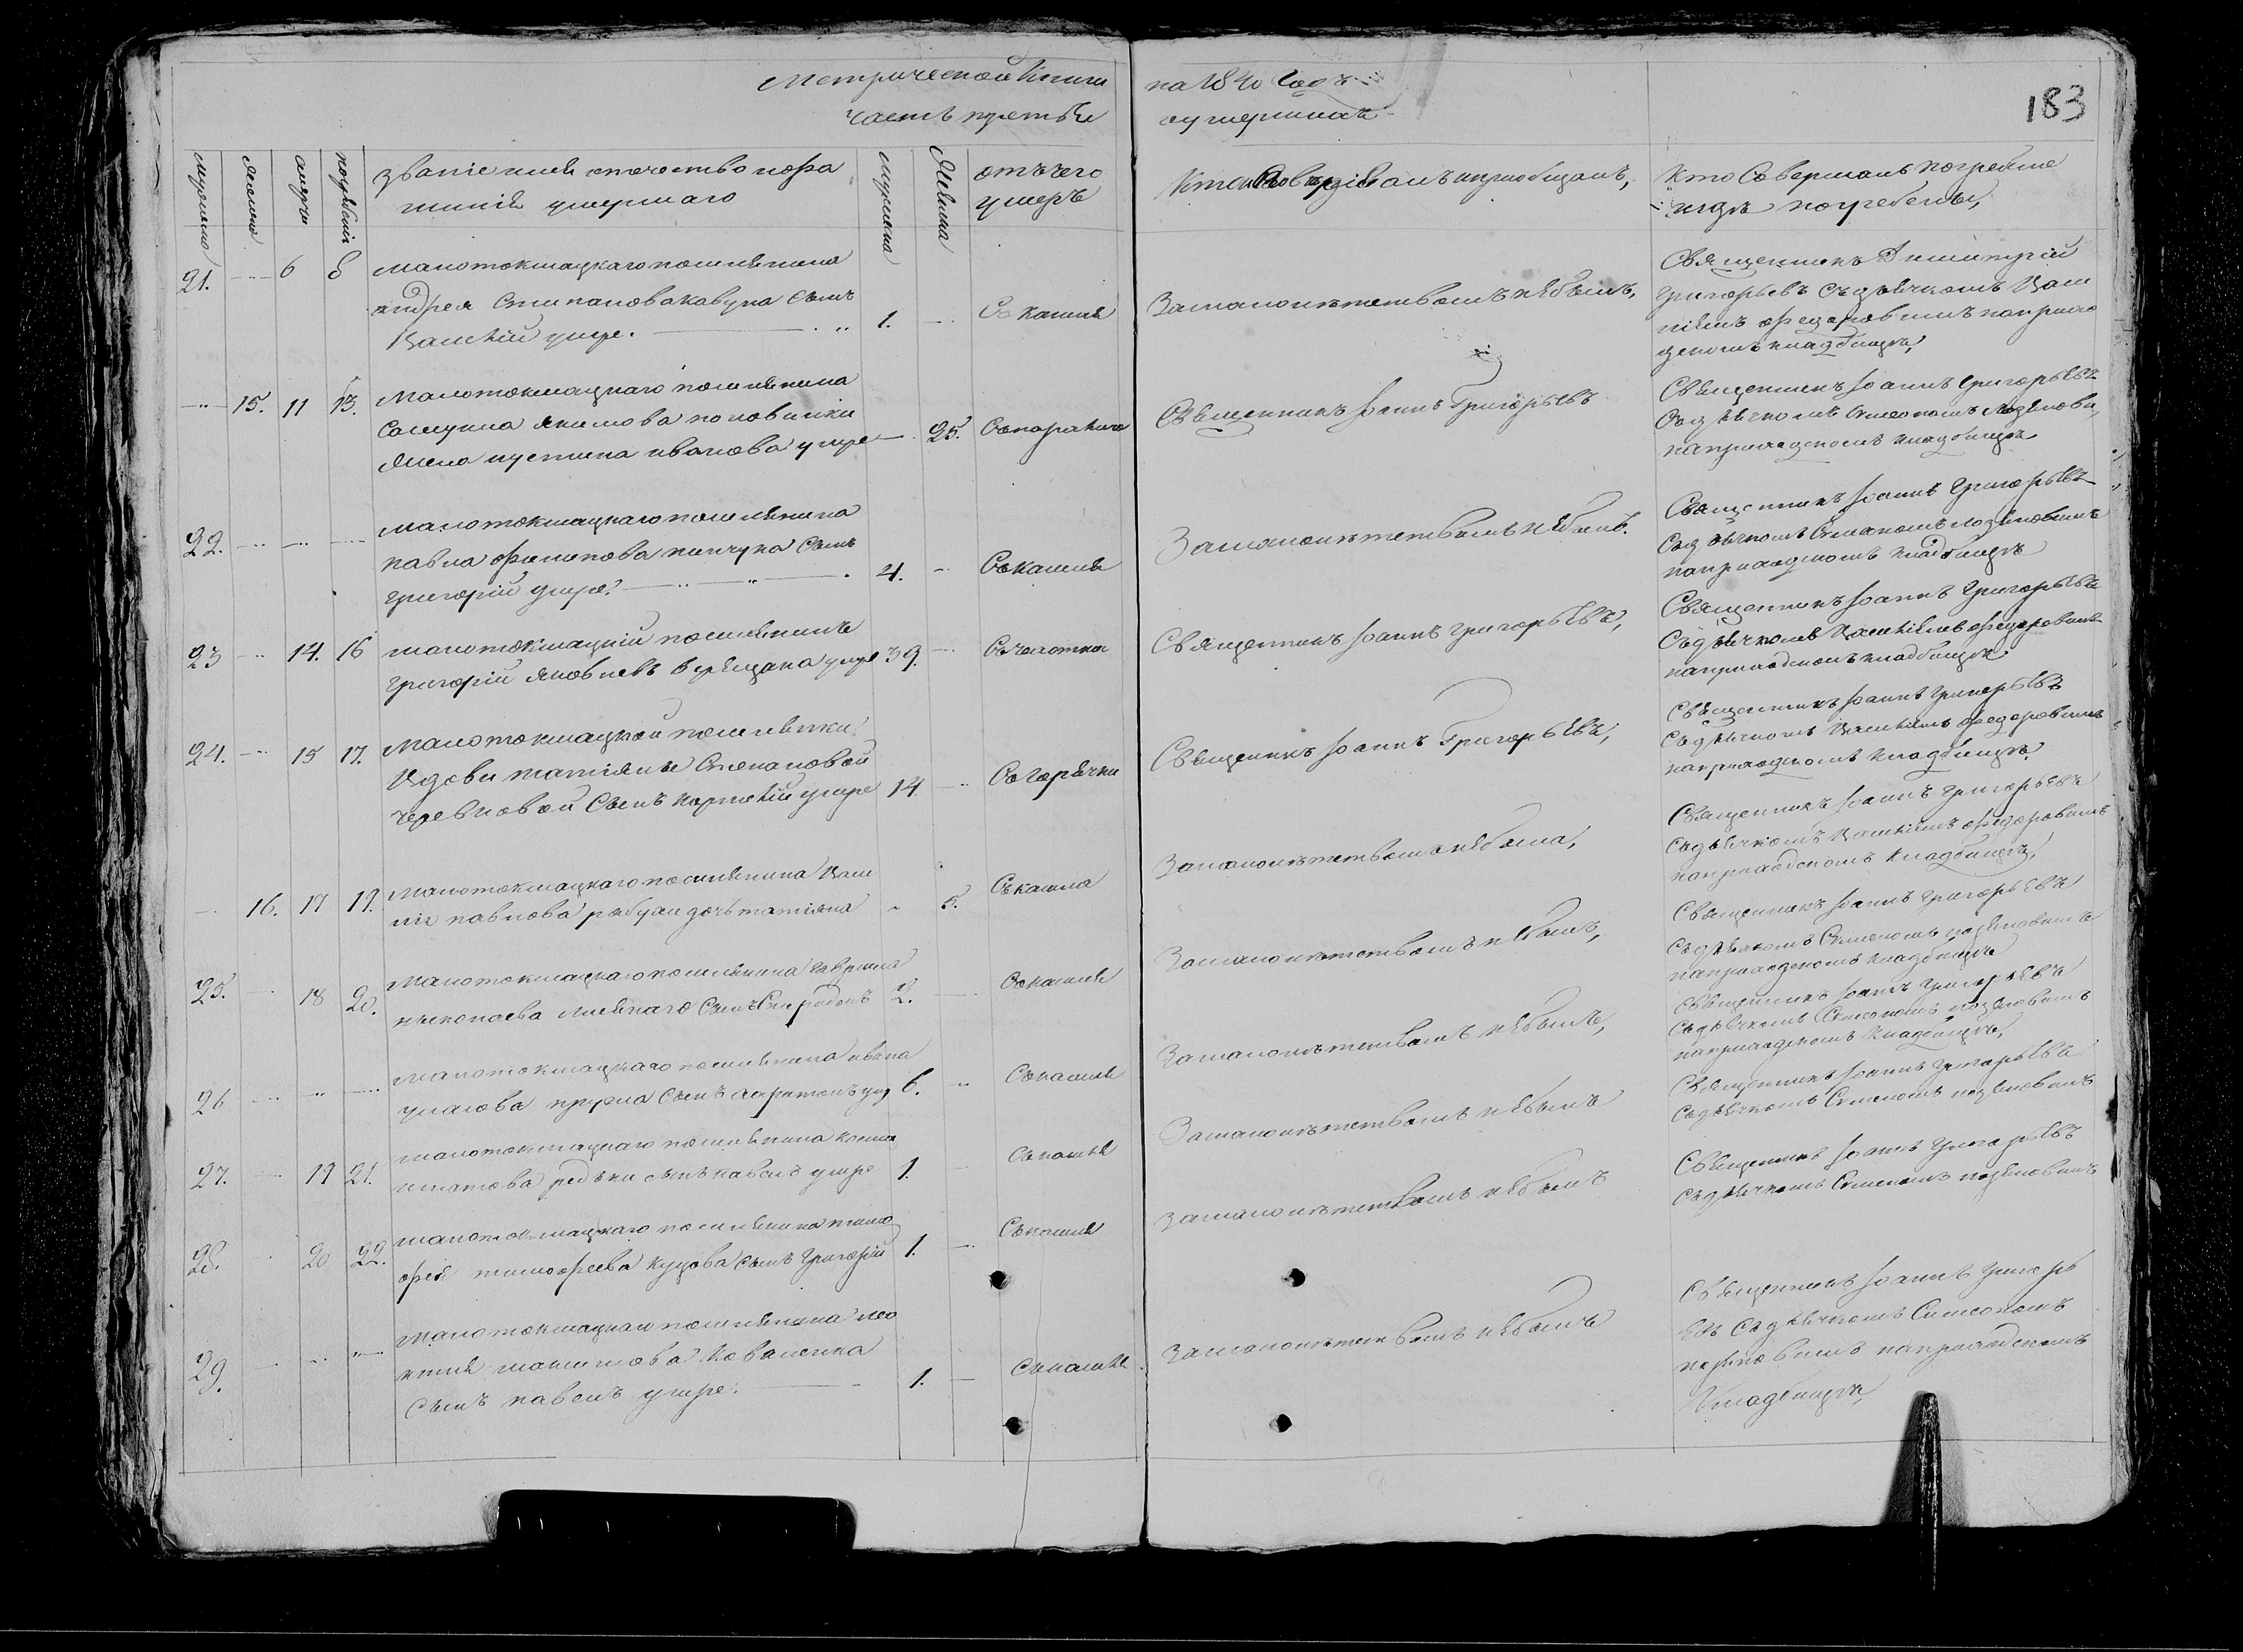 Метрической Книги на 1840 Годъ
часть третья
о умершихъ
183
мужеска
женска
смерти
погребенія
званіе имя отечество и фа
милія умершаго
мужеска
женска
отъ чего
умеръ
Кто исповѣдывалъ и приобщалъ,
Кто Совершалъ погребение
и гдѣ погребены,
21. 6 8
малотокмацкаго поселянина
андрея Степанова кавуна Сынъ
Василій умре. 1.
Съ кашля
За малолѣтствомъ небылъ,
Священникъ Димитрій
Григорьевъ съ дьячкомъ Васи
ліемъ федоровымъ на приход
скомъ кладбищѣ,
15. 11 13.
Малотокмацкаго поселянина
Самуила якимова половинки
жена иустина иванова умре 25.
Священникъ Іоаннъ Григорьевъ
Священникъ Іоаннъ Григорьевъ
Съ дьячкомъ Симеономъ
на приходскомъ кладбищѣ
22.
малотокмацкаго поселянина
павла филипова пинчука Сынъ
григорій умре. 4.
Съ кашля
За малолѣтствомъ небылъ.
Священникъ Іоаннъ Григорьевъ
Съ дьячкомъ Симеономъ
на приходскомъ кладбищѣ
23 14. 16
малотокмацкій поселянинъ
Григорій яковлевъ умре 39.
Съ чахотки
Священникъ Іоаннъ Григорьевъ,
Священникъ Іоаннъ Григорьевъ
Съ дьячкомъ Василіемъ федоровымъ
на приходскомъ кладбищѣ
24. 15 17.
Малотокмацкой поселянки
Вдовы татіяны Степановой
Сынъ корнилій умре 14
Съ Горячки
Священникъ Іоаннъ Григорьевъ,
Священникъ Іоаннъ Григорьевъ
Съ дьячкомъ Василіемъ федоровымъ
на приходскомъ кладбищѣ.
16. 17 19.
Малотокмацкаго поселянина Васи
лія павлова дочь татіяна 5.
Съ кашля
За малолѣтствомъ небыла,
Священникъ Іоаннъ Григорьевъ
Съ дьячкомъ Василіемъ федоровымъ
на приходскомъ Кладбищѣ,
25. 18 20.
Малотокмацкаго поселянина гаврила
николаева Сынъ Спиридонъ 2.
Съ кашля
За малолѣтствомъ небылъ,
Священникъ Іоаннъ Григорьевъ
Съ дьячкомъ Симеономъ
на приходскомъ кладбищѣ
26
Малотокмацкаго поселянина ивана
Сынъ 6.
Съ кашля
За малолѣтствомъ небылъ,
Священникъ Іоаннъ Григорьевъ
Съ дьячкомъ Симеономъ
на приходскомъ Кладбищѣ,
27. 19 21.
малотокмацкаго поселянина
игнатова редьки сынъ павелъ умре 1.
Съ кашля
За малолѣтствомъ небылъ
Священникъ Іоаннъ Григорьевъ
Съ дьячкомъ Симеономъ
28. 20 22.
малотокмацкаго поселянина тимо
фея тимофеева Сынъ Григорій 1.
Съ кашля
За малолѣтствомъ небылъ
Священникъ Іоаннъ Григорьевъ
Съ дьячкомъ Симеономъ
29.
Малотокмацкаго поселянина лео
нтия максимова Коваленка
Сынъ павелъ умре. 1.
Съ кашля
За малолѣтствомъ небылъ
Священникъ Іоаннъ Григорь
евъ Съ дьячкомъ Симеономъ
на приходскомъ
Кладбищѣ,